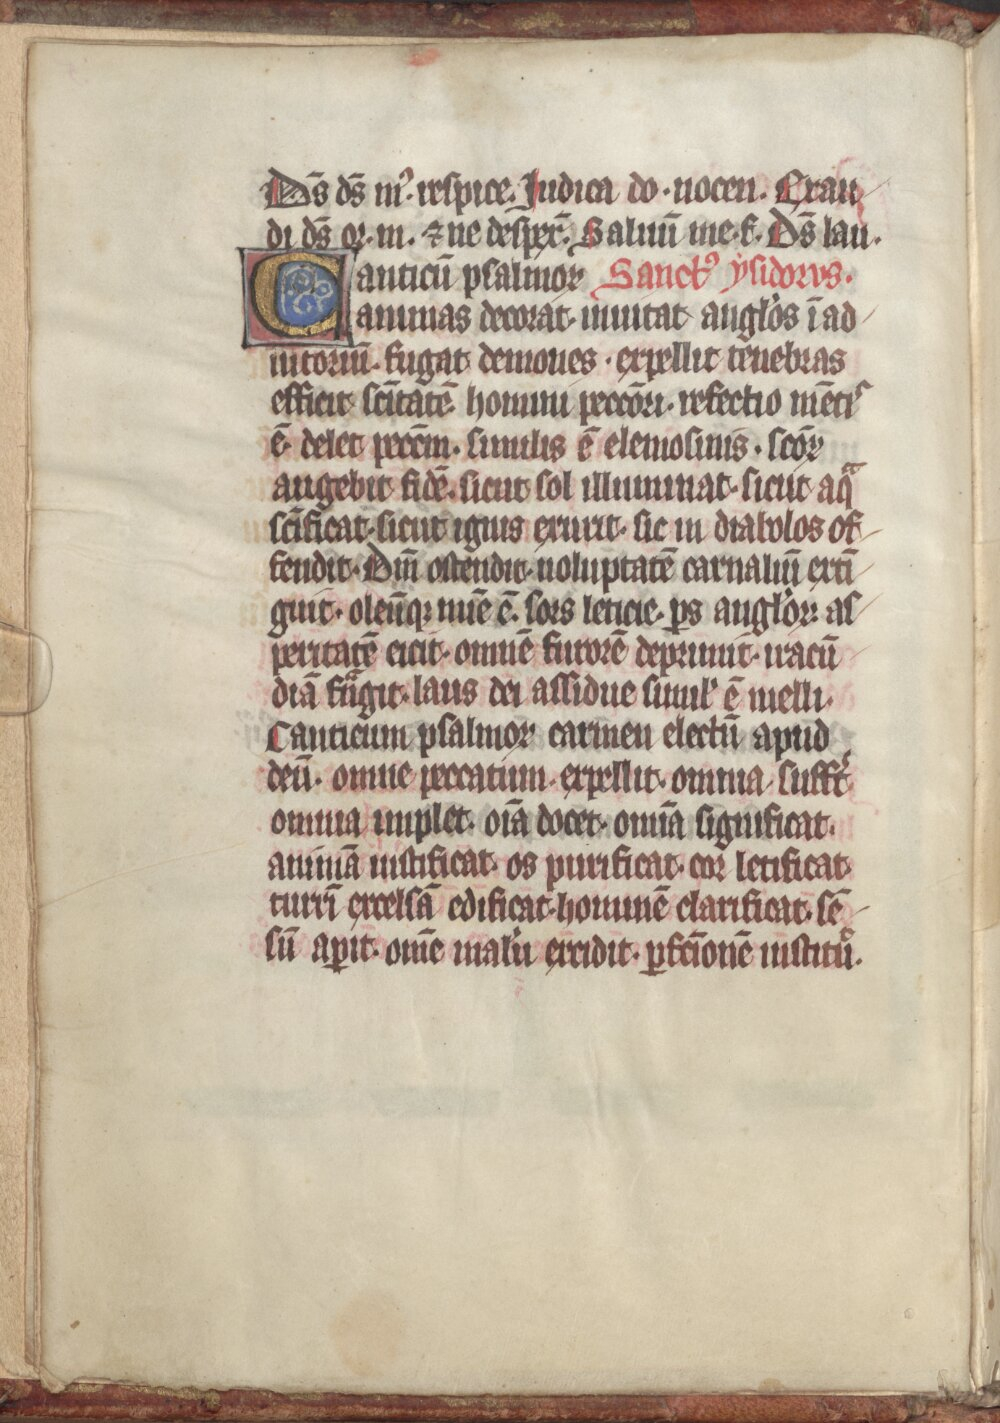 Dn̄s ds̄ m̉. respice. Judica do. nocen. Exau
di dn̄s or. m. ⁊ ne desper̄. Saluū me. f. Dn̄s lau.
Canticū psalmoꝝ Sanctꝰ ysidorus.
animas decorat. inuitat angl̉os ī ad
iutoriū. fugat demones. expellit tenebras
efficit scītatē homini peccōri. refectio mētis
ē. delet peccm̄. similis ē elemosinis. scōꝝ
augebit fidē. sicut sol illuminat. sicut aqᵃ
scīficat. sicut ignis exurit. sic in diabolos of
fendit. Dm̄ ostendit. uoluptatē carnaliū exti
guit. oleūqꝫ mīe ē. sors leticie. ps angl̉oꝝ. as
peritatē eicit. omnē furorē deprimit. iracū
diā frᵃgit. laus dei assidue simul̉ ē melli.
Canticum psalmoꝝ carmen electū apud
deū. omne peccatum. expellit. omnia suffi̇t
omnia implet. oīa docet. omīa significat.
animā iustificat. os purificat. cor letificat.
turrī excelsā edificat. hominē clarificat. sē
sū apit. om̄e malū excidit. ꝑfcīonē institū.